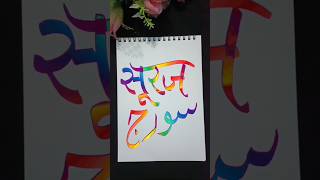 सूरज
سورج